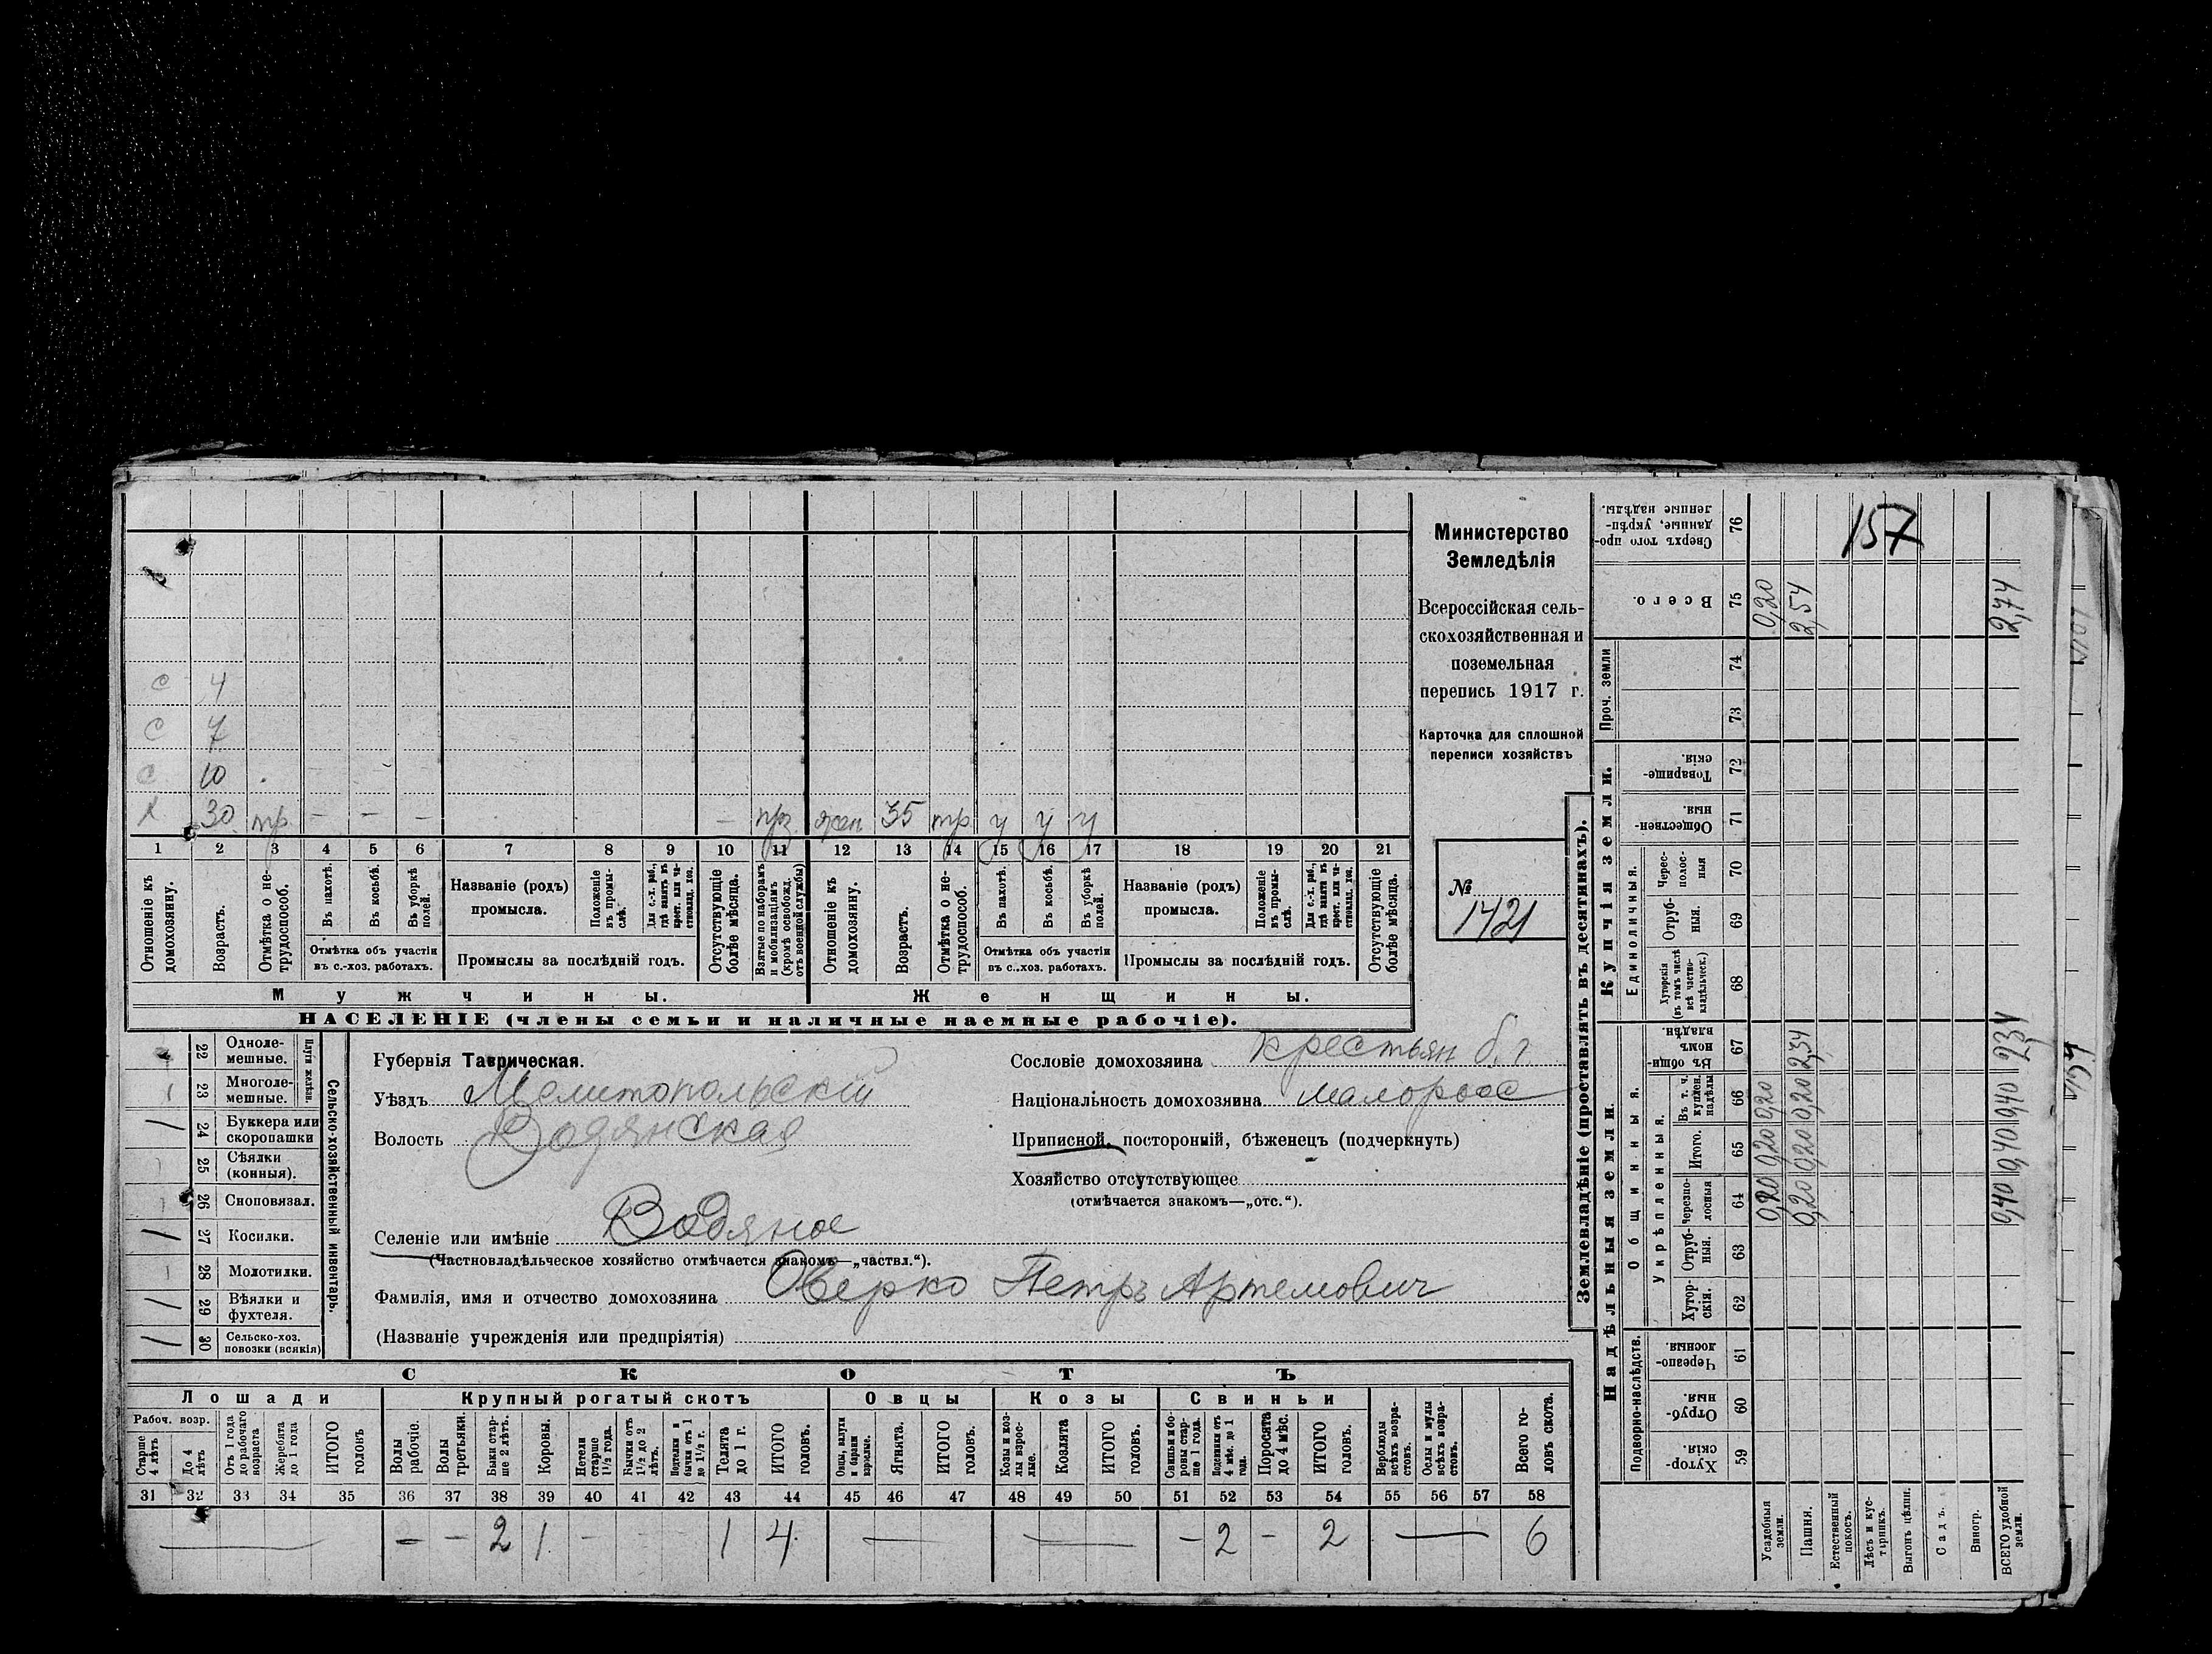 157
Министерство
Земледѣлія
Всероссійская сель-
скохозяйственная и
поземельная
перепись 1917 г.
Карточка для сплошной
переписи хозяйствъ
№
1421
с 4
с 7
с 10
30 тр – – – – жен 35 тр у у у
1 2 3 4 5 6 7 8 9 10 11 12 13 14 15 16 17 18 19 20 21
Отношеніе къ домохозяину.
Возрастъ.
Отмѣтка о не-трудоспособ.
Въ пахотѣ.
Въ косьбѣ.
Въ уборкѣ полей.
Отмѣтка объ участіи въ с.-хоз. работахъ.
Названіе (родъ) промысла.
Положеніе въ промы-слѣ.
Для с.-х. раб., гдѣ занятъ въ крест. или ча-стновлад. хоз.
Промыслы за послѣдній годъ.
Отсутствующіе болѣе мѣсяца.
Взятые по наборамъ и мобилизаціямъ (кромѣ освобожд. отъ военной службы)
Отношеніе къ домохозяину.
Возрастъ.
Отмѣтка о не-трудоспособ.
Въ пахотѣ.
Въ косьбѣ.
Въ уборкѣ полей.
Отмѣтка объ участіи въ с.-хоз. работахъ.
Названіе (родъ) промысла.
Положеніе въ промы-слѣ.
Для с.-х. раб., гдѣ занятъ въ крест. или ча-стновлад. хоз.
Промыслы за послѣдній годъ.
Отсутствующіе болѣе мѣсяца.
Мужчины.
Женщины.
НАСЕЛЕНІЕ (члены семьи и наличные наемные рабочіе).
Сельско-хозяйственный инвентарь.
Плуги желѣзн.
22 Одноле-мешные.
23 Многоле-мешные.
/ 24 Буккера или скоропашки
25 Сѣялки (конныя).
26 Сноповязал.
/ 27 Косилки.
28 Молотилки.
/ 29 Вѣялки и фухтеля.
/ 30 Сельско-хоз. повозки (всякія)
Губернія Таврическая.
Уѣздъ Мелитопольскій
Волость Водянская
Селеніе или имѣніе Водяное
(Частновладѣльческое хозяйство отмѣчается знакомъ—„частвл.“).
Фамилія, имя и отчество домохозяина Оверко Петръ Артемович
(Названіе учрежденія или предпріятія)
Сословіе домохозяина крестьян б. г
Національность домохозяина малоросс
Приписной, посторонній, бѣженецъ (подчеркнуть)
Хозяйство отсутствующее
(отмѣчается знакомъ—„отс.“).
СКОТЪ
Лошади Крупный рогатый скотъ Овцы Козы Свиньи
Рабоч. возр.
Старше 4 лѣтъ
До 4 лѣтъ
Отъ 1 года до рабочаго возраста
Жеребята до 1 года
ИТОГО головъ
Волы рабочіе.
Волы третьяки.
Быки стар-ше 2 лѣтъ.
Коровы.
Нетели старше 1½ года.
Бычки отъ 1½ до 2 лѣтъ.
Подтелки и бычки отъ 1 до 1½ г.
Телята до 1 г.
ИТОГО головъ.
Овцы, валухи и бараны взрослые.
Ягнята.
ИТОГО головъ.
Козы и коз-лы взрос-лые.
Козлята
ИТОГО головъ.
Свиньи и бо-ровы стар-ше 1 года.
Подсвинки отъ 4 мѣс. до 1 года.
Поросята до 4 мѣс.
ИТОГО головъ.
Верблюды всѣхъ возра-стовъ.
Ослы и мулы всѣхъ возра-стовъ.
Всего го-ловъ скота.
31 32 33 34 35 36 37 38 39 40 41 42 43 44 45 46 47 48 49 50 51 52 53 54 55 56 57 58
— – – 2 1 – – – 1 4 — — – 2 – 2 — 6
Землевладѣніе (проставлять въ десятинахъ).
Надѣльныя земли.
Купчія земли.
Проч. земли
Подворно-наслѣдств.
Общинныя.
Укрѣпленныя.
Единоличныя.
Хутор-скія. 59
Отруб-ныя. 60
Черезпо-лосныя. 61
Хутор-скія. 62
Отруб-ныя. 63
Черезпо-лосныя 64
Итого. 65
Въ т. ч. куплен. надѣлы 66
Въ общин-номъ владѣн. 67
Хуторскія (въ томъ числѣ всѣ частно-владѣльческ.) 68
Отруб-ныя. 69
Черес-полос-ныя 70
Обществен-ныя. 71
Товарище-скія. 72
73
74
Всего. 75
Сверхъ того про-данные, укрѣп-ленные надѣлы. 76
Усадебныя земли. 0,20 0,20 0,20 0,20
Пашня. 0,20 0,20 0,20 2,34 2,54
Естественный покосъ.
Лѣсъ и кус-тарникъ.
Выгонъ цѣлин.
Садъ.
Виногр.
ВСЕГО удобной земли. 0,40 0,40 0,40 2,34 2,74